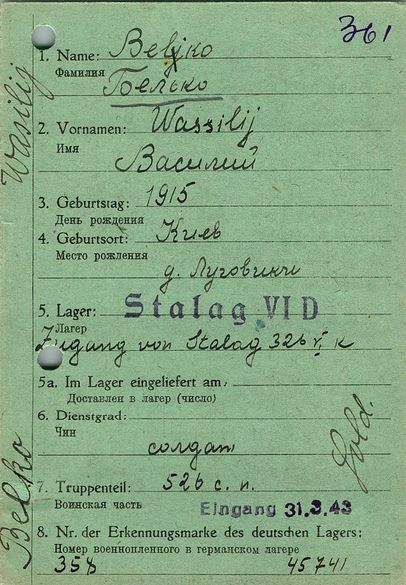 361
1. Name: Beljko
Фамилия Белько
2. Vornamen: Wassilij
Имя
Василий
3. Geburtstag: 1915
День рождения
4. Geburtsort: Киев
Место рождения
д. Луговички
5. Lager: Stalag VI D
Лагер
Zugang von Stalag 326 VI K
5a. Im Lager eingeliefert am:
Доставлен в лагер (число)
6. Dienstgrad:
Чин
солдат
7. Truppenteil: 526 с. п.
Воинская часть Eingang 31.3.43
8. Nr. der Erkennungsmarke des deutschen Lagers:
Номер военнопленного в германском лагере
358 45741
Wasilij
Belko
Sold.